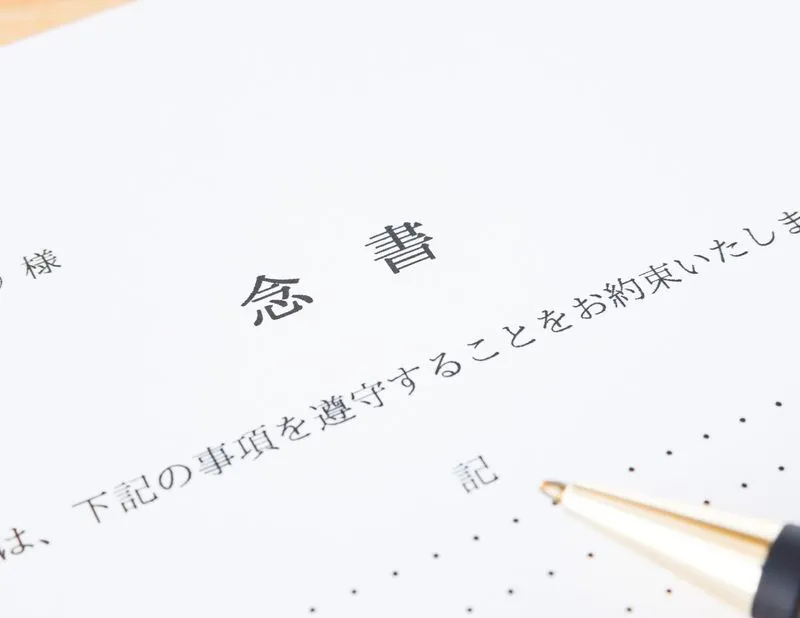 様
念 書
は、下記の事項を遵守することをお約束いたしま
記